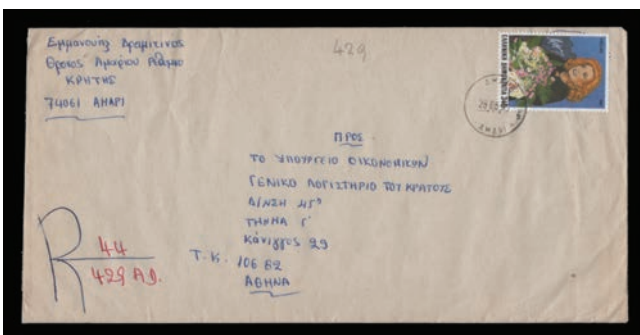 Εμμανουήλ Δραμιτινος
Θρονος Αμαρίου Ρεθύμνο
ΚΡΗΤΗΣ
74061 ΑΜΑΡΙ
429
ΠΡΟΣ
ΤΟ ΥΠΟΥΡΓΕΙΟ ΟΙΚΟΝΟΜΙΚΩΝ
ΓΕΝΙΚΟ ΛΟΓΙΣΤΗΡΙΟ ΤΟΥ ΚΡΑΤΟΥΣ
Δ/ΝΣΗ 45η
ΤΜΗΜΑ Γ'
Κάνιγγος 29
Τ.Κ. 106 82
ΑΘΗΝΑ
R 44
429 ΑΔ.